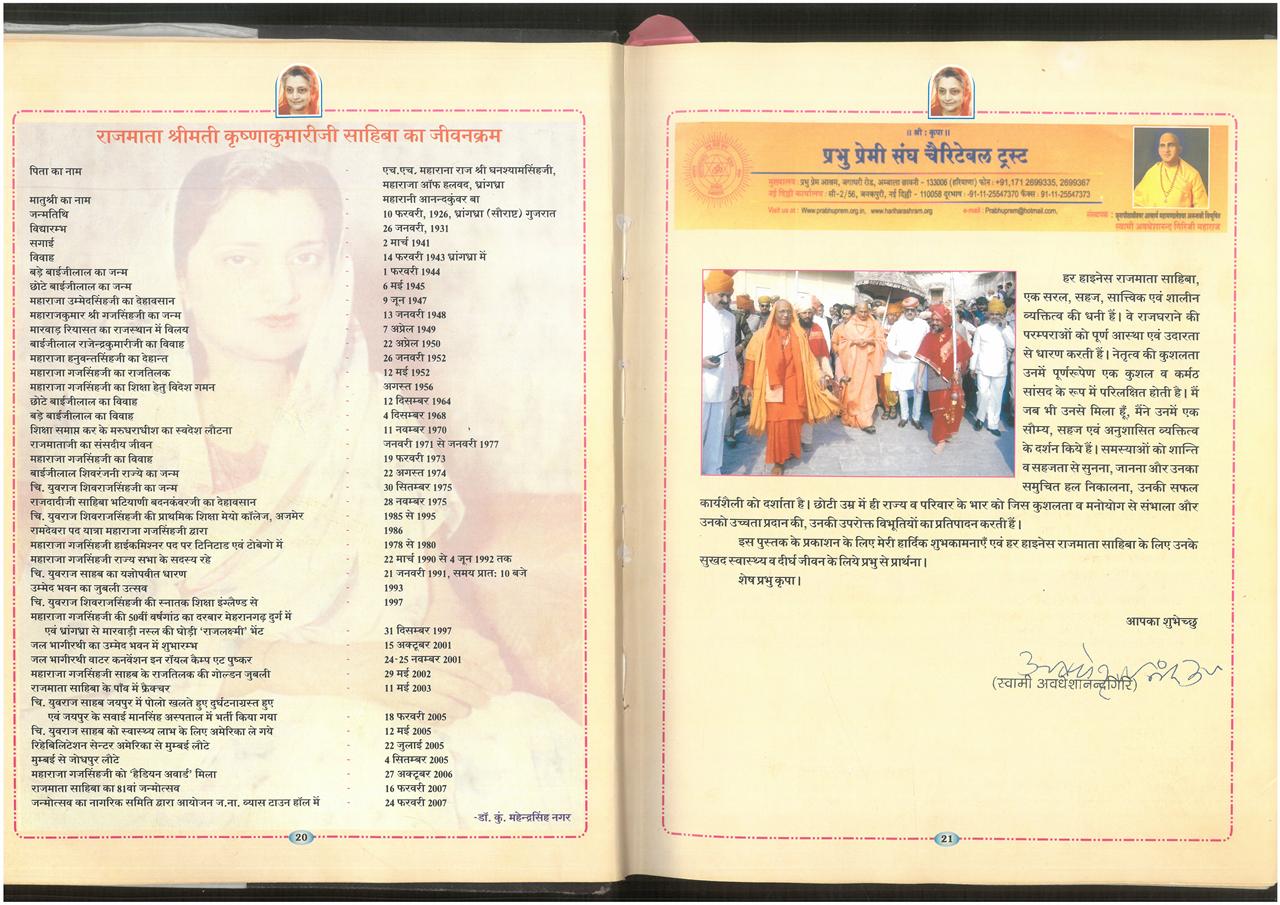 राजमाता श्रीमती कृष्णाकुमारीजी साहिबा का जीवनक्रम
पिता का नाम - एच.एच. महाराना राज श्री घनश्यामसिंहजी,
महाराजा ऑफ हलवद, ध्रांगध्रा
मातुश्री का नाम - महारानी आनन्दकुंवर बा
जन्मतिथि - 10 फरवरी, 1926, ध्रांगध्रा (सौराष्ट्र) गुजरात
विद्यारम्भ - 26 जनवरी, 1931
सगाई - 2 मार्च 1941
विवाह - 14 फरवरी 1943 ध्रांगध्रा में
बड़े बाईजीलाल का जन्म - 1 फरवरी 1944
छोटे बाईजीलाल का जन्म - 6 मई 1945
महाराजा उम्मेदसिंहजी का देहावसान - 9 जून 1947
महाराजकुमार श्री गजसिंहजी का जन्म - 13 जनवरी 1948
मारवाड़ रियासत का राजस्थान में विलय - 7 अप्रेल 1949
बाईजीलाल राजेन्द्रकुमारीजी का विवाह - 22 अप्रेल 1950
महाराजा हनुवन्तसिंहजी का देहान्त - 26 जनवरी 1952
महाराजा गजसिंहजी का राजतिलक - 12 मई 1952
महाराजा गजसिंहजी का शिक्षा हेतु विदेश गमन - अगस्त 1956
छोटे बाईजीलाल का विवाह - 12 दिसम्बर 1964
बड़े बाईजीलाल का विवाह - 4 दिसम्बर 1968
शिक्षा समाप्त कर के मरुधराधीश का स्वदेश लौटना - 11 नवम्बर 1970
राजमाताजी का संसदीय जीवन - जनवरी 1971 से जनवरी 1977
महाराजा गजसिंहजी का विवाह - 19 फरवरी 1973
बाईजीलाल शिवरंजनी राज्ये का जन्म - 22 अगस्त 1974
चि. युवराज शिवराजसिंहजी का जन्म - 30 सितम्बर 1975
राजदादीजी साहिबा भटियाणी बदनकंवरजी का देहावसान - 28 नवम्बर 1975
चि. युवराज शिवराजसिंहजी की प्राथमिक शिक्षा मेयो कॉलेज, अजमेर - 1985 से 1995
रामदेवरा पद यात्रा महाराजा गजसिंहजी द्वारा - 1986
महाराजा गजसिंहजी हाईकमिश्नर पद पर टिनिटाड एवं टोबेगो में - 1978 से 1980
महाराजा गजसिंहजी राज्य सभा के सदस्य रहे - 22 मार्च 1990 से 4 जून 1992 तक
चि. युवराज साहब का यज्ञोपवीत धारण - 21 जनवरी 1991, समय प्रात: 10 बजे
उम्मेद भवन का जुबली उत्सव - 1993
चि. युवराज शिवराजसिंहजी की स्नातक शिक्षा इंग्लैण्ड से - 1997
महाराजा गजसिंहजी की 50वीं वर्षगांठ का दरबार मेहरानगढ़ दुर्ग में
एवं ध्रांगध्रा से मारवाड़ी नस्ल की घोड़ी 'राजलक्ष्मी' भेंट - 31 दिसम्बर 1997
जल भागीरथी का उम्मेद भवन में शुभारम्भ - 15 अक्टूबर 2001
जल भागीरथी वाटर कनवेंशन इन रॉयल कैम्प एट पुष्कर - 24-25 नवम्बर 2001
महाराजा गजसिंहजी साहब के राजतिलक की गोल्डन जुबली - 29 मई 2002
राजमाता साहिबा के पाँव में फ्रैक्चर - 11 मई 2003
चि. युवराज साहब जयपुर में पोलो खलते हुए दुर्घटनाग्रस्त हुए
एवं जयपुर के सवाई मानसिंह अस्पताल में भर्ती किया गया - 18 फरवरी 2005
चि. युवराज साहब को स्वास्थ्य लाभ के लिए अमेरिका ले गये - 12 मई 2005
रिहेबिलिटेशन सेन्टर अमेरिका से मुम्बई लौटे - 22 जुलाई 2005
मुम्बई से जोधपुर लौटे - 4 सितम्बर 2005
महाराजा गजसिंहजी को 'हैडियन अवार्ड' मिला - 27 अक्टूबर 2006
राजमाता साहिबा का 81वां जन्मोत्सव - 16 फरवरी 2007
जन्मोत्सव का नागरिक समिति द्वारा आयोजन ज.ना. व्यास टाउन हॉल में - 24 फरवरी 2007
-डॉ. कुं. महेन्द्रसिंह नगर
20
॥ श्री : कृपा ॥
प्रभु प्रेमी संघ चैरिटेबल ट्रस्ट
मुख्यालय : प्रभु प्रेम आश्रम, जगाधरी रोड, अम्बाला छावनी - 133006 (हरियाणा) फोन : +91,171 2699335, 2699367
नई दिल्ली कार्यालय : सी-2/56, जनकपुरी, नई दिल्ली - 110058 दूरभाष : 91-11-25547370 फैक्स : 91-11-25547373
Visit us at : Www.Prabhuprem.org.in, www.hariharashram.org e-mail : Prabhuprem@hotmail.com,
संस्थापक : जूनापीठाधीश्वर आचार्य महामण्डलेश्वर अनन्तश्री विभूषित
स्वामी अवधेशानन्द गिरिजी महाराज
हर हाइनेस राजमाता साहिबा,
एक सरल, सहज, सात्त्विक एवं शालीन
व्यक्तित्व की धनी हैं। वे राजघराने की
परम्पराओं को पूर्ण आस्था एवं उदारता
से धारण करती हैं। नेतृत्व की कुशलता
उनमें पूर्णरूपेण एक कुशल व कर्मठ
सांसद के रूप में परिलक्षित होती है। मैं
जब भी उनसे मिला हूँ, मैंने उनमें एक
सौम्य, सहज एवं अनुशासित व्यक्तित्व
के दर्शन किये हैं। समस्याओं को शान्ति
व सहजता से सुनना, जानना और उनका
समुचित हल निकालना, उनकी सफल
कार्यशैली को दर्शाता है। छोटी उम्र में ही राज्य व परिवार के भार को जिस कुशलता व मनोयोग से संभाला और
उनको उच्चता प्रदान की, उनकी उपरोक्त विभूतियों का प्रतिपादन करती हैं।
इस पुस्तक के प्रकाशन के लिए मेरी हार्दिक शुभकामनाएँ एवं हर हाइनेस राजमाता साहिबा के लिए उनके
सुखद स्वास्थ्य व दीर्घ जीवन के लिये प्रभु से प्रार्थना।
शेष प्रभु कृपा।
आपका शुभेच्छु
(स्वामी अवधेशानन्दगिरि)
21